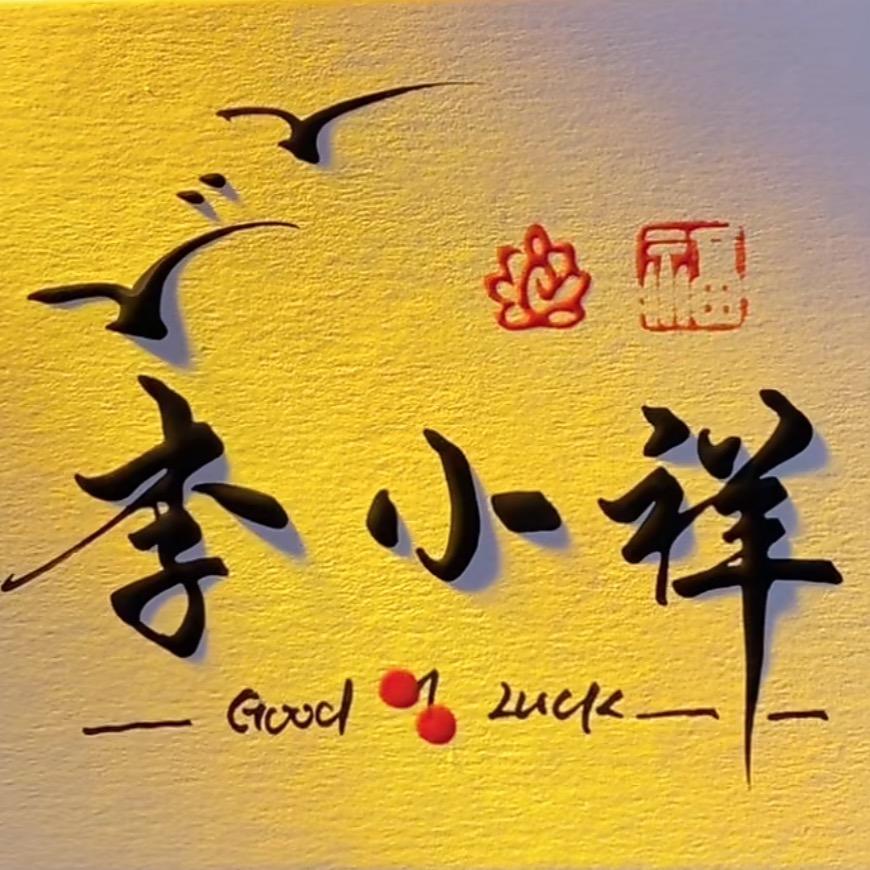 福
李小祥
Good Luck